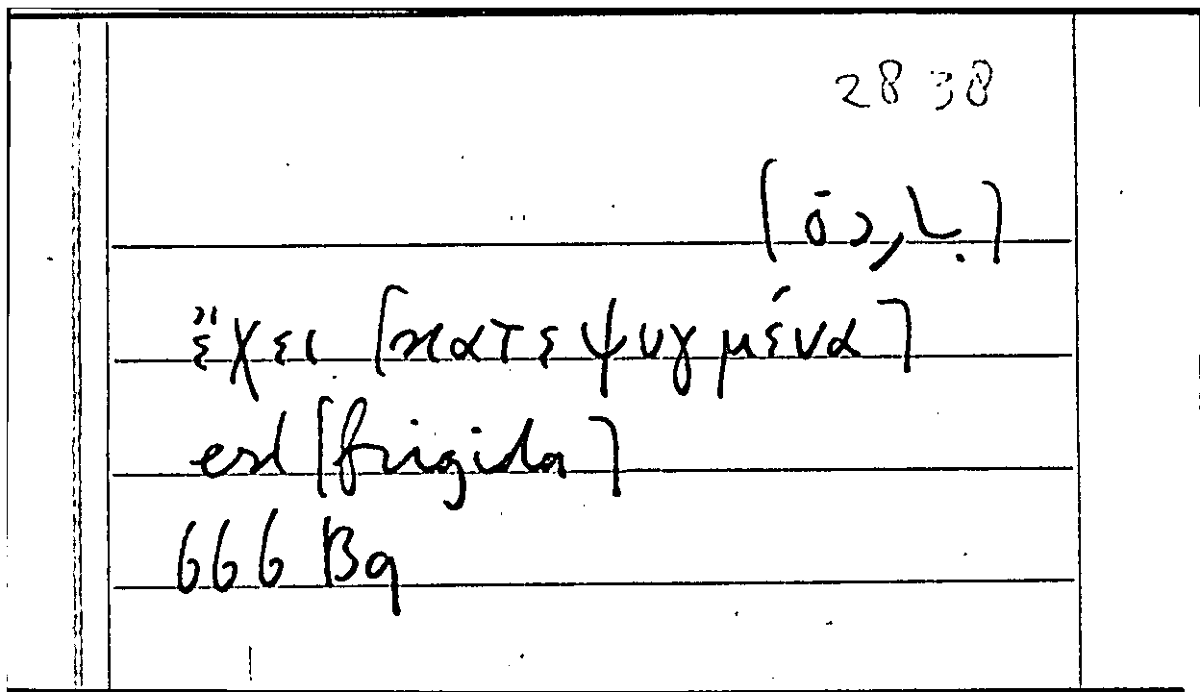 2838
[باردة]
ἔχει [κατεψυγμένα]
est [frigida]
666 B9